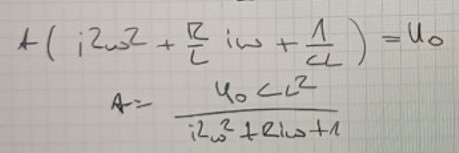 A ( i²ω² + R/L iω + 1/CL ) = U₀
A = U₀ CL² / i²ω² + Riω + 1